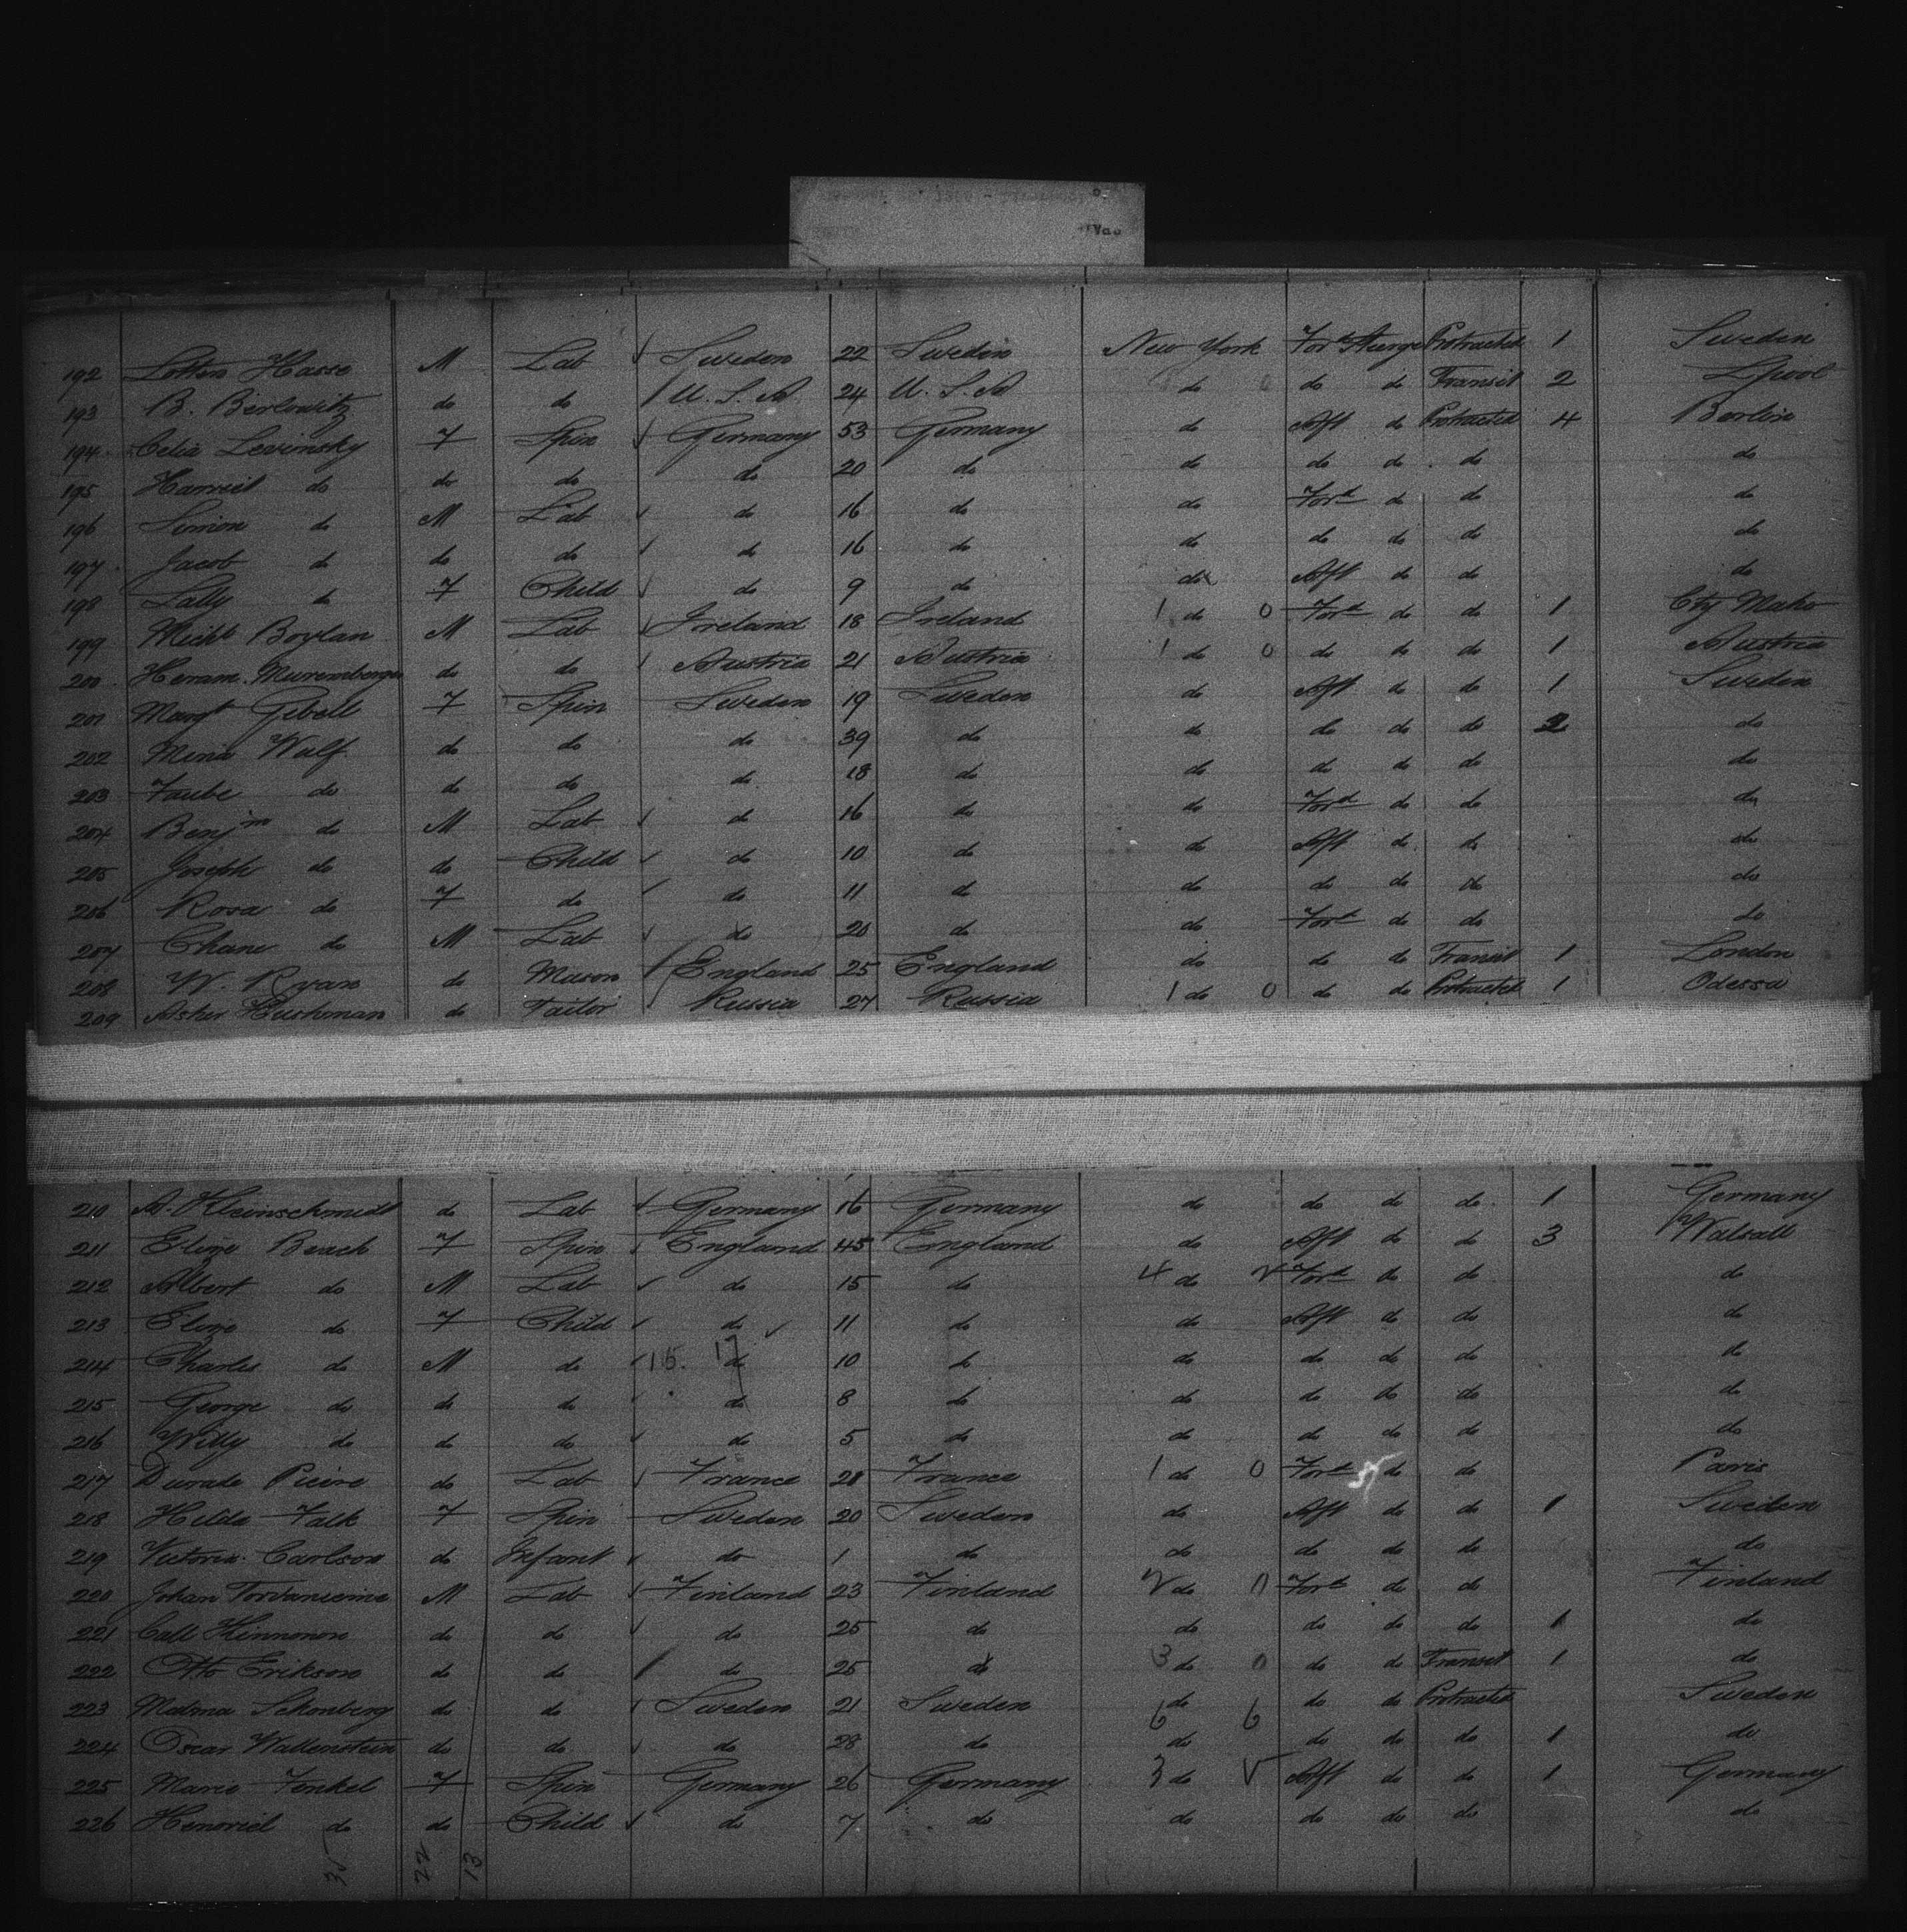 192 Lotten Hasse M Lab Sweden 22 Sweden New York Ford Steerge Protracted 1 Sweden
193 B. Berlowitz do do U. S. A 24 U. S. A do do do Transit 2 Lpool
194 Celia Levinsky F Spin Germany 53 Germany do Aft do Protracted 4 Berlin
195 Harriet do do do do 20 do do do do do do
196 Simon do M Lab do 16 do do Ford do do do
197 Jacob do do do do 16 do do do do do do
198 Lally do F Child do 9 do do Aft do do do
199 Michl Boylan M Lab Ireland 18 Ireland 1 do 0 Ford do do 1 Cty Mako
200 Heram. Muremberger do do Austria 21 Austria 1 do 0 do do do 1 Austria
201 Margt Gebell F Spin Sweden 19 Sweden do Aft do do 1 Sweden
202 Mina Wulf do do do 39 do do do do do do
203 Taube do do do do 18 do do do do do do
204 Benjm do M Lab do 16 do do Ford do do do
205 Joseph do do Child do 10 do do Aft do do do
206 Rosa do F do do 11 do do do do do do
207 Chane do M Lab do 20 do do Ford do do do
208 W. Ryan do Mason England 25 England do do do Transit 1 London
209 Asher Hushman do Tailor Russia 27 Russia 1 do 0 do do Protracted 1 Odessa
210 A. Kleinschmidt do Lab Germany 16 Germany do do do do 1 Germany
211 Eliza Beach F Spin England 45 England do Aft do do 3 Walsall
212 Albert do M Lab do 15 do 4 do Ford do do do
213 Eliza do F Child do 11 do do Aft do do do
214 Charles do M do 115. 17 do 10 do do do do do do
215 George do do do do 8 do do do do do do
216 Willy do do do do 5 do do do do do do
217 Durade Pieire do Lab France 28 France 1 do 0 Ford do do Paris
218 Hilda Falk F Spin Sweden 20 Sweden do Aft do do 1 Sweden
219 Victoria Carlson do Infant do 1 do do do do do do
220 Johan M Lab Finland 23 Finland 2 do 0 Ford do do Finland
221 Call Hinnonen do do do 25 do do do do do 1 do
222 Otto Erikson do do do 25 do 3 do 0 do do Transit 1 do
223 Medma Sckonberg do do Sweden 21 Sweden do do do Protracted Sweden
224 Oscar Wallenstein do do do 28 do 6 do 6 do do do 1 do
225 Marie Fenkel F Spin Germany 26 Germany 3 do Aft do do 1 Germany
226 Henoriel do do Child do 7 do do do do do do
35 22 13